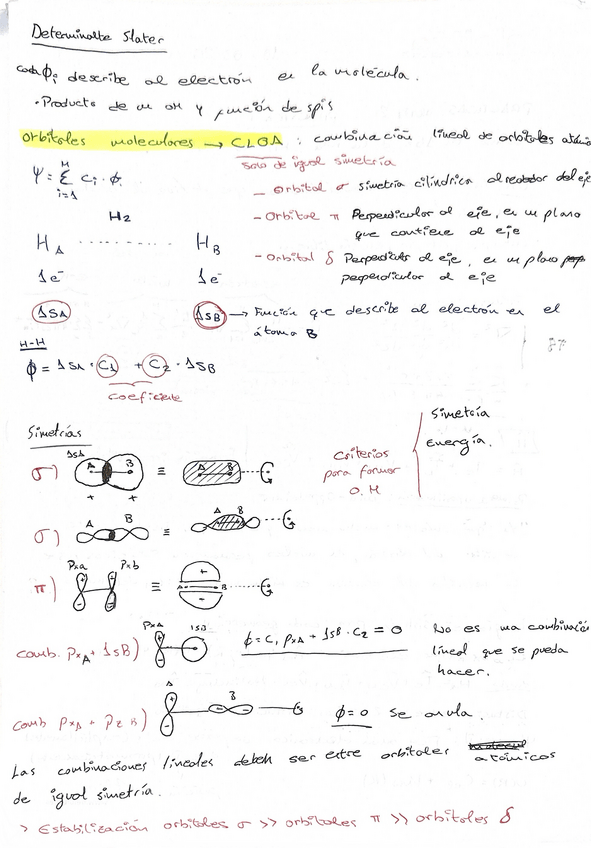 Determinante Slater
cada ϕi describe al electrón en la molécula.
· Producto de un OM y función de spin
Orbitales moleculares → CLOA : combinación lineal de orbitales atómi
solo de igual simetría
Ψ = Σ ci · ϕi
M
i=1
– Orbital σ simetría cilíndrica alrededor del eje
H2
– Orbital π Perpendicular al eje, en un plano
que contiene al eje
HA ........ HB
– Orbital δ Perpendicular al eje, en un plano
perpendicular al eje
1e⁻ 1e⁻
1SA 1SB → Función que describe al electrón en el
átomo B
H-H
ϕ = 1SA · C1 + C2 · 1SB
coeficiente
Simetrías
Criterios
para formar
O.M
Simetría
Energía.
σ) 1SA A B + + ≡ A B
σ) A B ≡ A B
π) Pxa Pxb + + - - ≡ + A B -
comb. PxA + 1SB) PxA 1SB ϕ = C1 PxA + 1SB · C2 = 0 No es una combinació
lineal que se pueda
hacer.
comb PxA + Pz B) A B + - - + ϕ=0 se anula.
Las combinaciones lineales deben ser entre orbitales atómicos
de igual simetría.
> Estabilización orbitales σ >> orbitales π >> orbitales δ